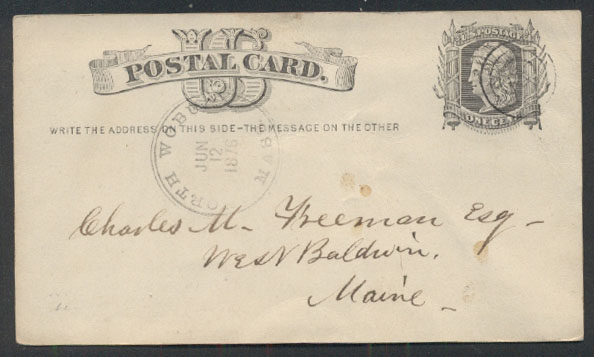 US
POSTAL CARD.
U.S. POSTAGE
ONE CENT
WRITE THE ADDRESS ON THIS SIDE-THE MESSAGE ON THE OTHER
NORTH WOBURN MASS
JUN
12
1876
Charles M. Freeman Esq-
West Baldwin.
Maine-